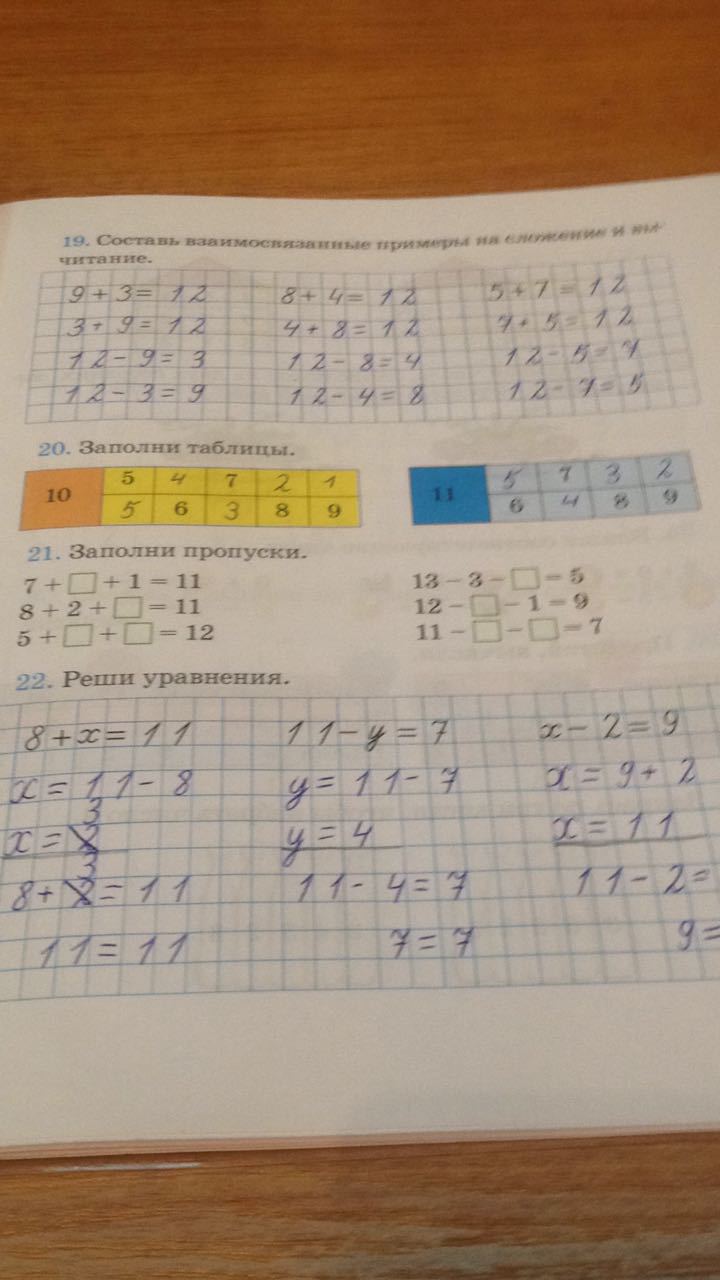 19. Составь взаимосвязанные примеры на сложение и вы-
читание.
9 + 3 = 12 8 + 4 = 12 5 + 7 = 12
3 + 9 = 12 4 + 8 = 12 7 + 5 = 12
12 - 9 = 3 12 - 8 = 4 12 - 5 = 7
12 - 3 = 9 12 - 4 = 8 12 - 7 = 5
20. Заполни таблицы.
10 5 4 7 2 1 11 5 7 3 2
5 6 3 8 9 6 4 8 9
21. Заполни пропуски.
7 + □ + 1 = 11 13 - 3 - □ = 5
8 + 2 + □ = 11 12 - □ - 1 = 9
5 + □ + □ = 12 11 - □ - □ = 7
22. Реши уравнения.
8 + x = 11 11 - y = 7 x - 2 = 9
x = 11 - 8 y = 11 - 7 x = 9 + 2
x = 3 y = 4 x = 11
8 + 3 = 11 11 - 4 = 7 11 - 2 =
11 = 11 7 = 7 9 =